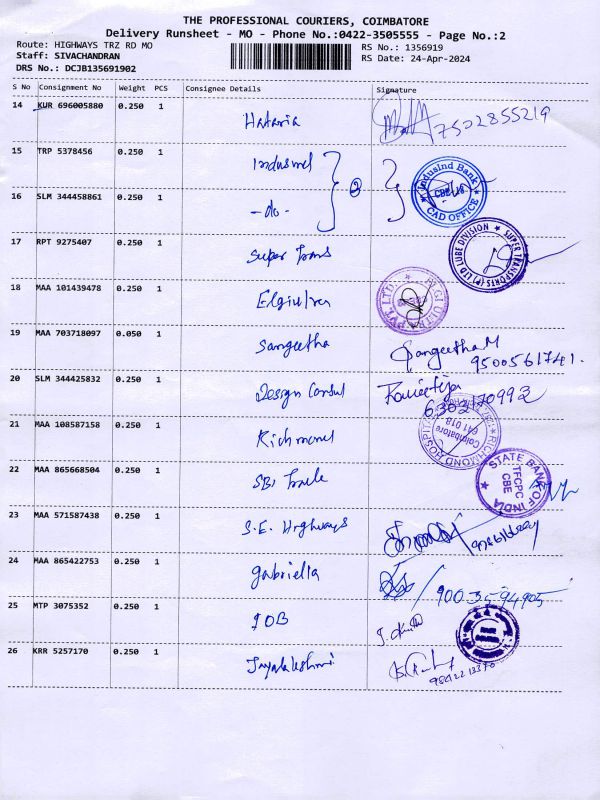 THE PROFESSIONAL COURIERS, COIMBATORE
Delivery Runsheet - MO - Phone No.:0422-3505555 - Page No.:2
Route: HIGHWAYS TRZ RD MO
Staff: SIVACHANDRAN
DRS No.: DCJB135691902
RS No.: 1356919
RS Date: 24-Apr-2024
S No Consignment No Weight PCS Consignee Details Signature
14 KUR 696005880 0.250 1 7502855219
15 TRP 5378456 0.250 1 Indusind
Indusind Bank CBE CAD OFFICE
16 SLM 344458861 0.250 1 -do- 2
17 RPT 9275407 0.250 1 Super Trans
SUPER TRANSPORTS (P) LTD LUBE DIVISION
18 MAA 101439478 0.250 1
PVT. LTD.
19 MAA 703718097 0.050 1 Sangeetha Sangeetha M
9500561741.
20 SLM 344425832 0.250 1 Design Consul
6302170992
21 MAA 108587158 0.250 1 Richmond
RICHMOND HOSPITAL Coimbatore 641 018
22 MAA 865668504 0.250 1 SBI Trade
STATE BANK OF INDIA TFCPC CBE
23 MAA 571587438 0.250 1 S.E. Highways
24 MAA 865422753 0.250 1 gabriella 9003594905
25 MTP 3075352 0.250 1 IOB
26 KRR 5257170 0.250 1 Jayalakshmi